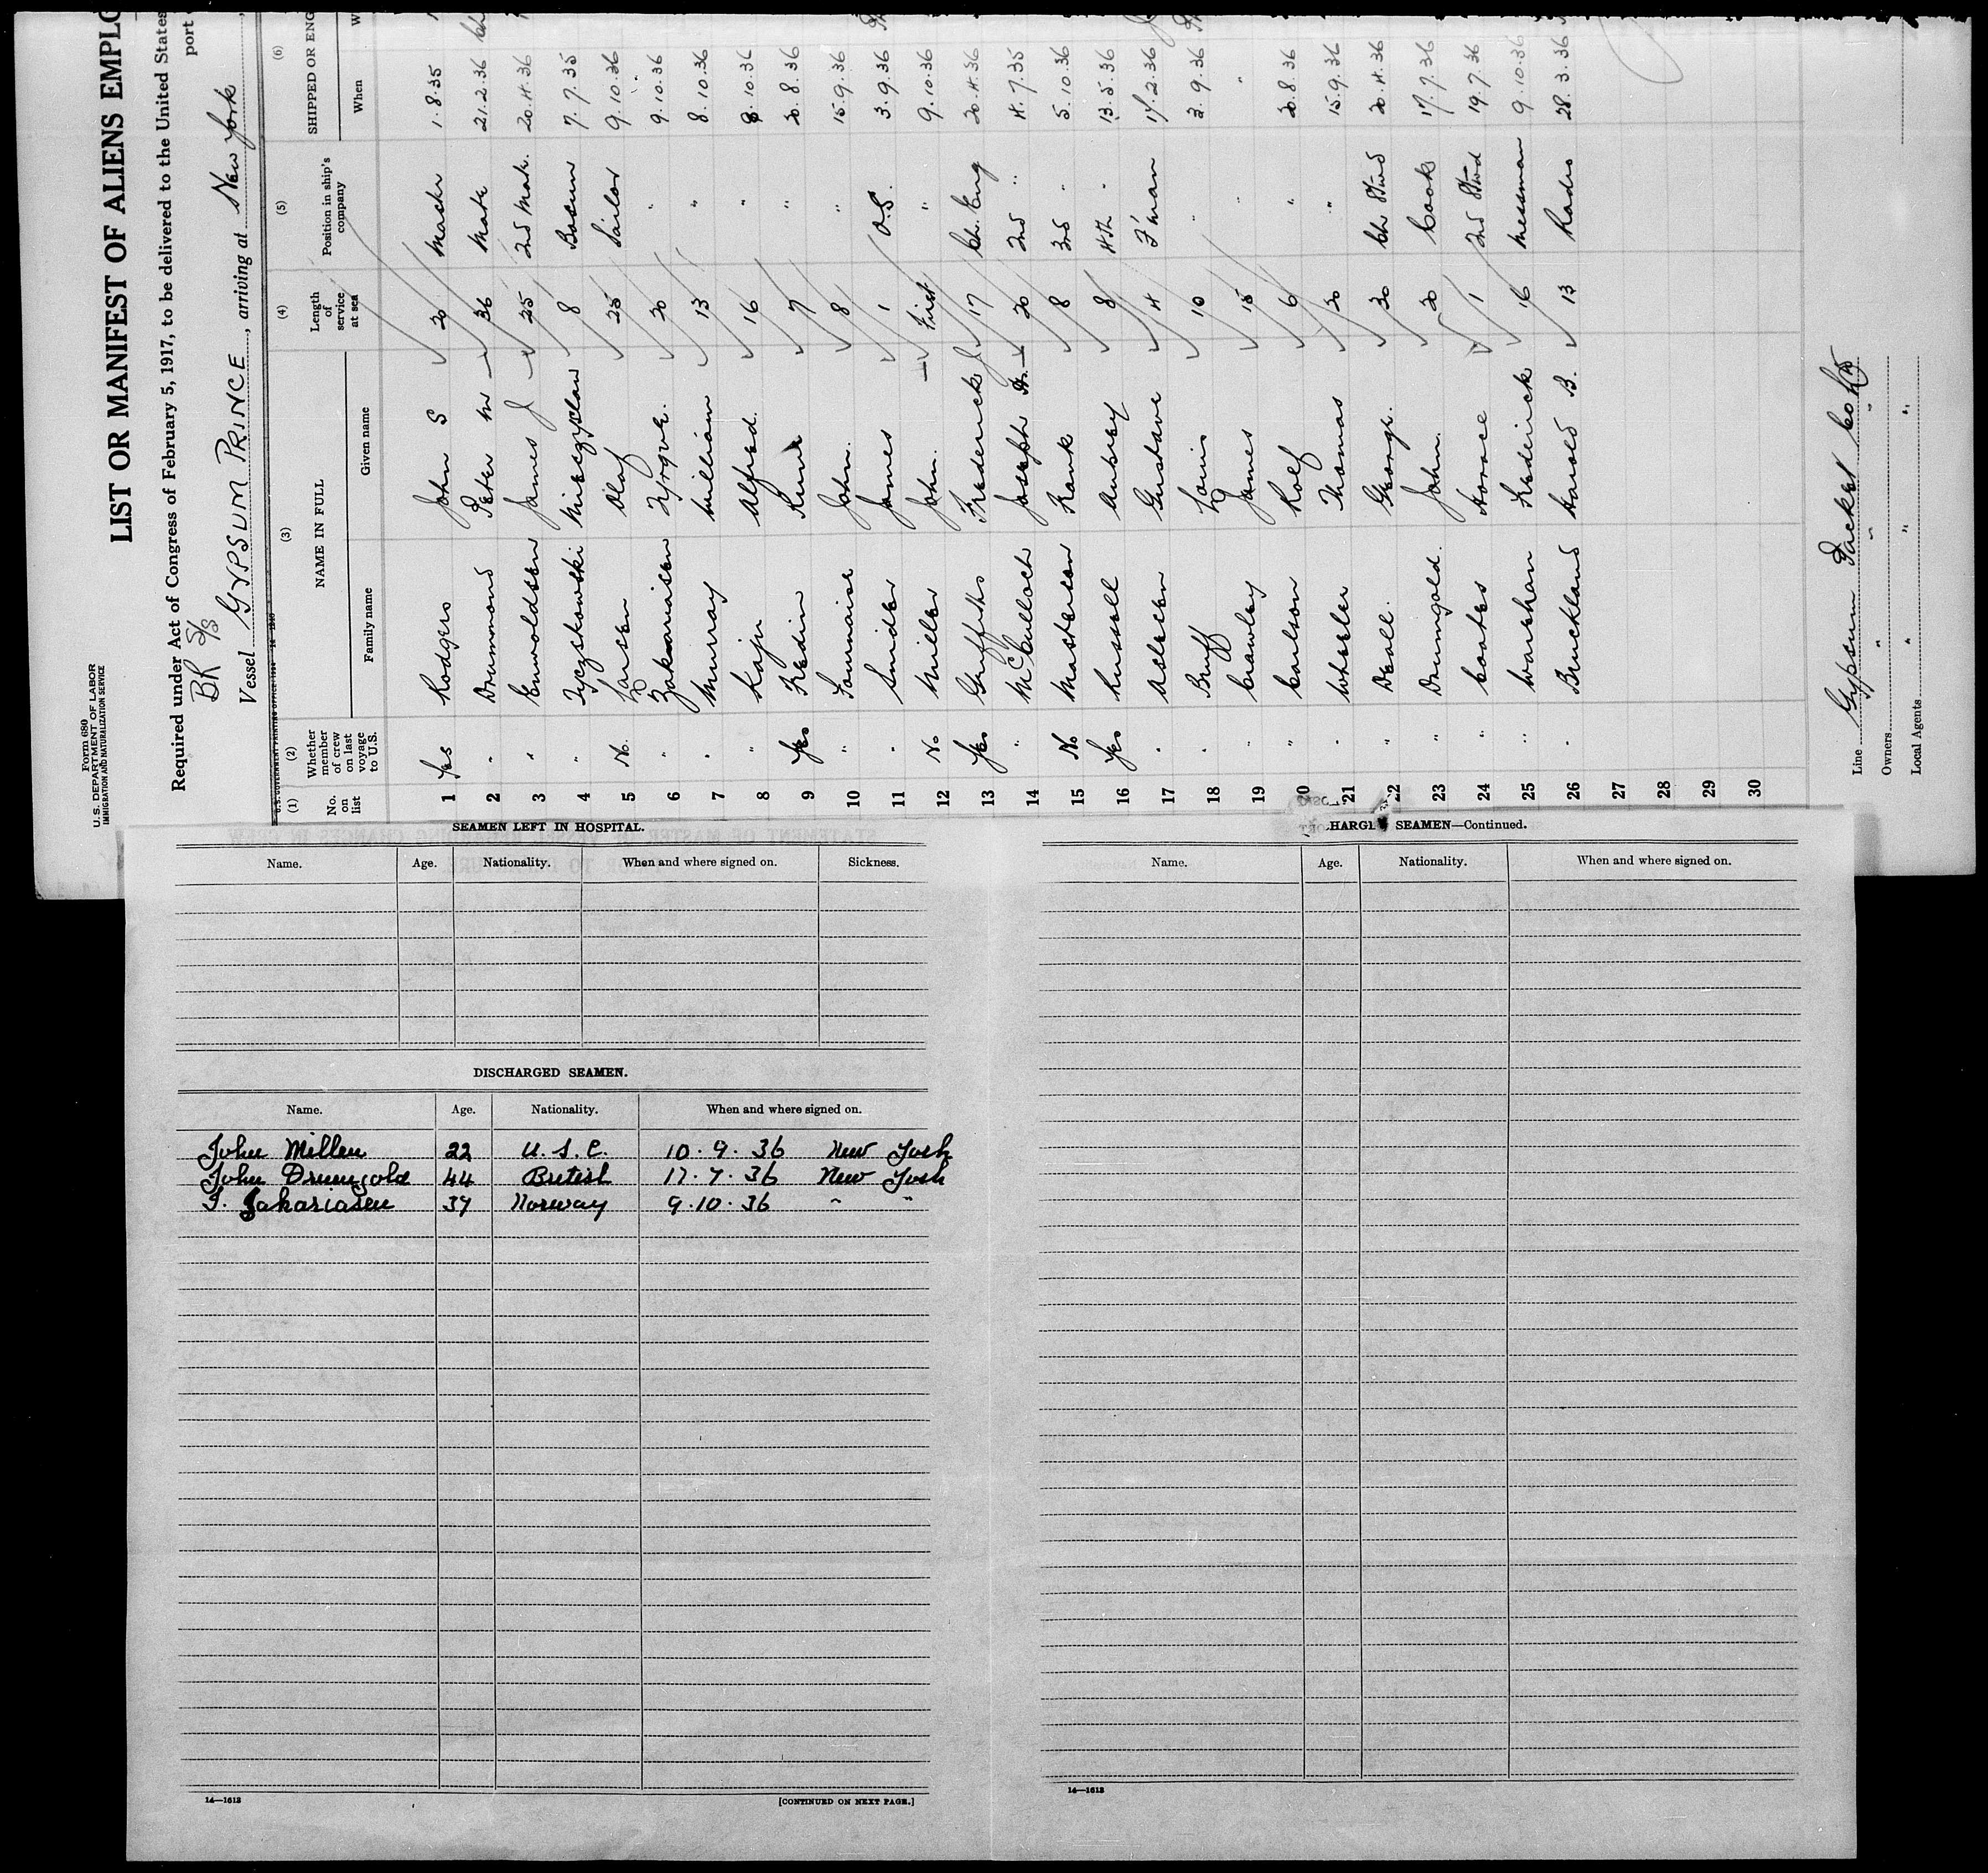 Form 680
U.S. DEPARTMENT OF LABOR
IMMIGRATION AND NATURALIZATION SERVICE
LIST OR MANIFEST OF ALIENS EMPLO
Required under Act of Congress of February 5, 1917, to be delivered to the United States
port
BR S/S
Vessel GYPSUM PRINCE, arriving at New York
(1) (2) (3) (4) (5) (6)
No. on list Whether member of crew on last voyage to U.S. NAME IN FULL Length of service at sea Position in ship's company SHIPPED OR ENG
Family name Given name When W
1 Yes Rodgers John S 20 Master 1.8.35
2 " Drummond Peter M 36 Mate 21.2.36
3 " Enwoldsen James J 25 2nd Mate. 20.4.36
4 " Tyczkowski Mieczyslaw 8 Bosun 7.7.35
5 No. Larsen Olaf 25 Sailor 9.10.36
6 " Zakariasen Trygve. 20 " 9.10.36
7 " Murray William 13 " 8.10.36
8 " Kaju Alfred. 16 " 8.10.36
9 Yes Fredin Rune 7 " 20.8.36
10 " John. 8 " 15.9.36
11 " Smider James 1 O.S. 3.9.36
12 No Miller John. First " 9.10.36
13 Yes Griffiths Frederick J 17 Ch. Eng 20.4.36
14 " McCulloch Joseph H. 20 2nd " 4.7.35
15 No Masterson Frank 8 3rd " 5.10.36
16 Yes Russell Aubrey 8 4th " 13.5.36
17 " Aslesen Gustave 4 F'man 17.2.36
18 " Bruff Louis 10 " 3.9.36
19 " Crawley James 15 " "
20 " Carlson Rolf 6 " 20.8.36
21 " Wheeler Thomas 20 " 15.9.36
22 " Deall. George. 30 Ch Stwd 20.4.36
23 " Drumgold. John. 20 Cook 17.7.36
24 " Coates Horace 1 2nd Stwd 19.7.36
25 " Warehan Frederick 16 Messman 9.10.36
26 " Bruckland Harold B. 13 Radio 28.3.36
27
28
29
30
Line Gypsum Packet Co Ltd
Owners " " "
Local Agents " " "
SEAMEN LEFT IN HOSPITAL.
Name. Age. Nationality. When and where signed on. Sickness.
DISCHARGED SEAMEN.
Name. Age. Nationality. When and where signed on.
John Miller 22 U.S.C. 10.9.36 New York
John Drumgold 44 British 17.7.36 New York
T. Zakariasen 37 Norway 9.10.36 " "
14—1613
[CONTINUED ON NEXT PAGE.]
SEAMEN—Continued.
Name. Age. Nationality. When and where signed on.
14—1613